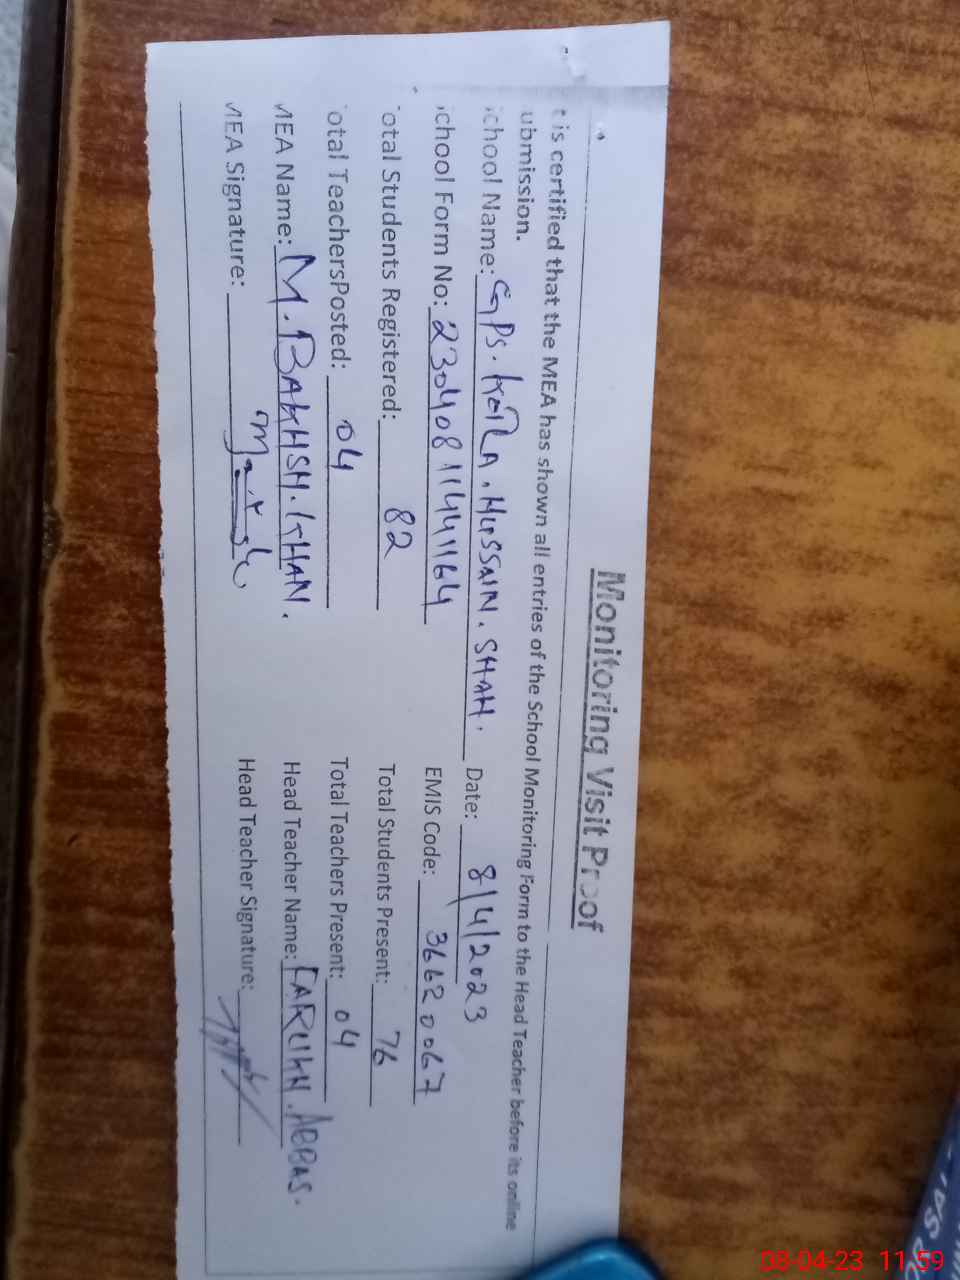 Monitoring Visit Proof
t is certified that the MEA has shown all entries of the School Monitoring Form to the Head Teacher before its online
ubmission.
chool Name: GPS. KOTLA. HUSSAIN. SHAH. Date: 8/4/2023
chool Form No: 23040811441164 EMIS Code: 36620067
otal Students Registered: 82 Total Students Present: 76
otal TeachersPosted: 04 Total Teachers Present: 04
MEA Name: M. BAKHSH. KHAN. Head Teacher Name: FARUKH. ABBAS.
MEA Signature: Head Teacher Signature:
08-04-23 11:59